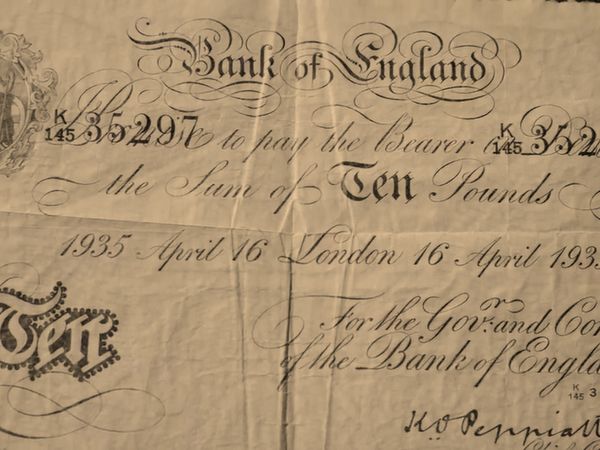 Bank of England
K
145 35297 to pay the Bearer K
145 352
the Sum of Ten Pounds
1935 April 16 London 16 April 193
For the Govr. and Co
of the Bank of Engla
Ten
K
145 3
K O Peppiatt